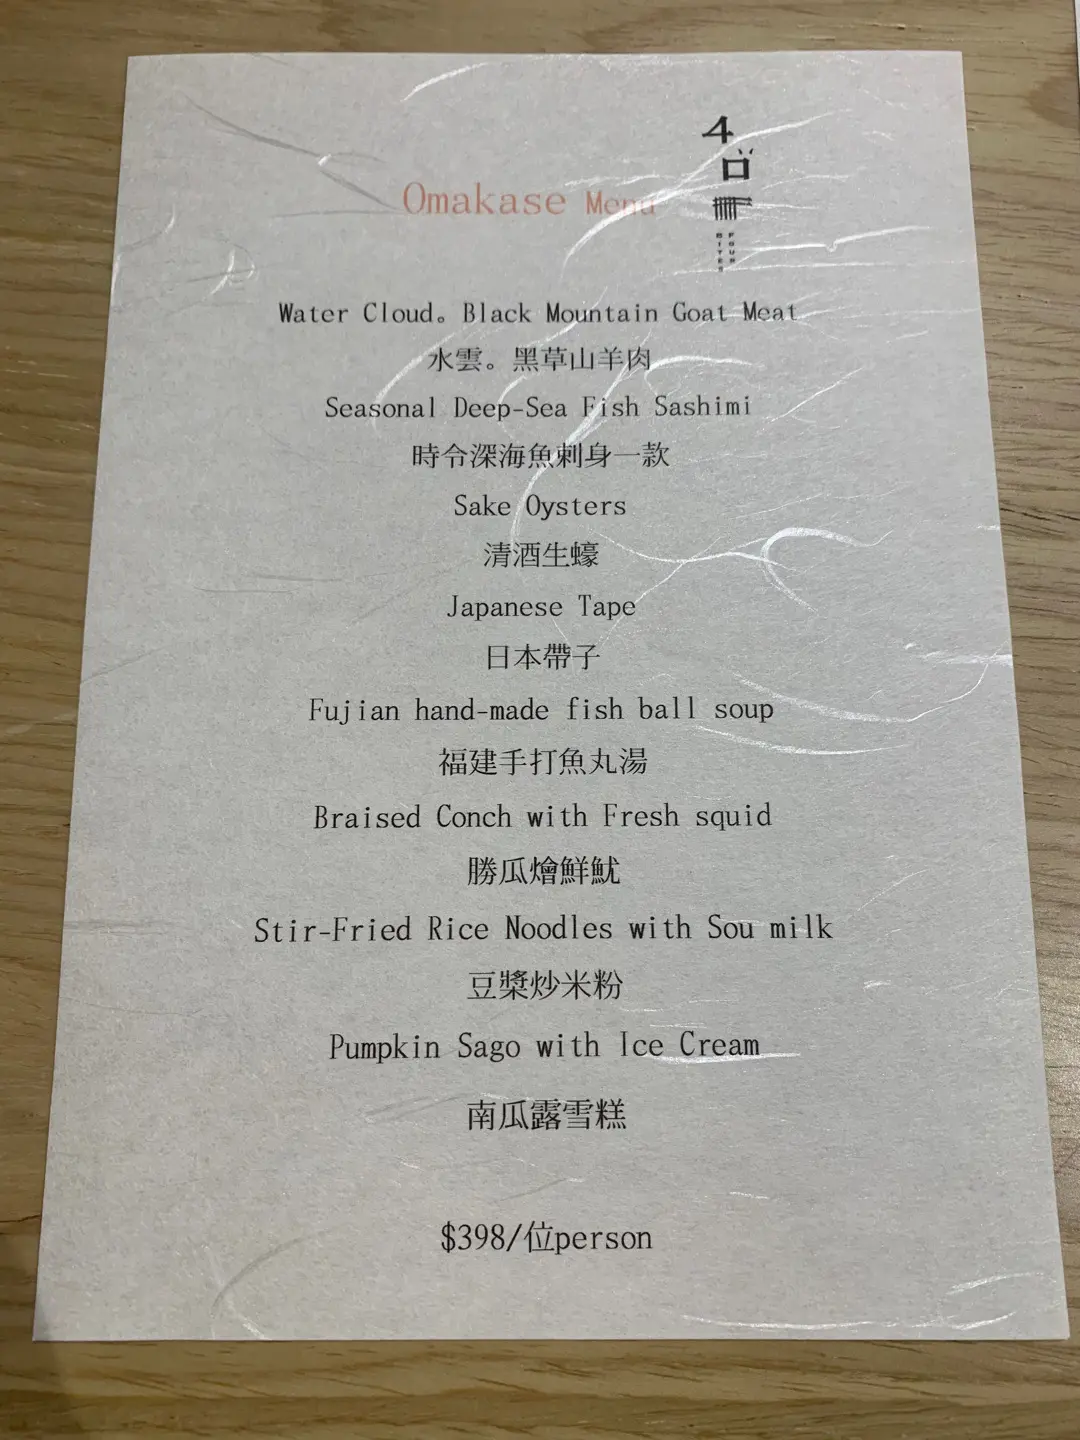 4
口
Omakase Menu
FOUR
BITES
Water Cloud。Black Mountain Goat Meat
水雲。黑草山羊肉
Seasonal Deep-Sea Fish Sashimi
時令深海魚刺身一款
Sake Oysters
清酒生蠔
Japanese Tape
日本帶子
Fujian hand-made fish ball soup
福建手打魚丸湯
Braised Conch with Fresh squid
勝瓜燴鮮魷
Stir-Fried Rice Noodles with Sou milk
豆漿炒米粉
Pumpkin Sago with Ice Cream
南瓜露雪糕
$398/位person